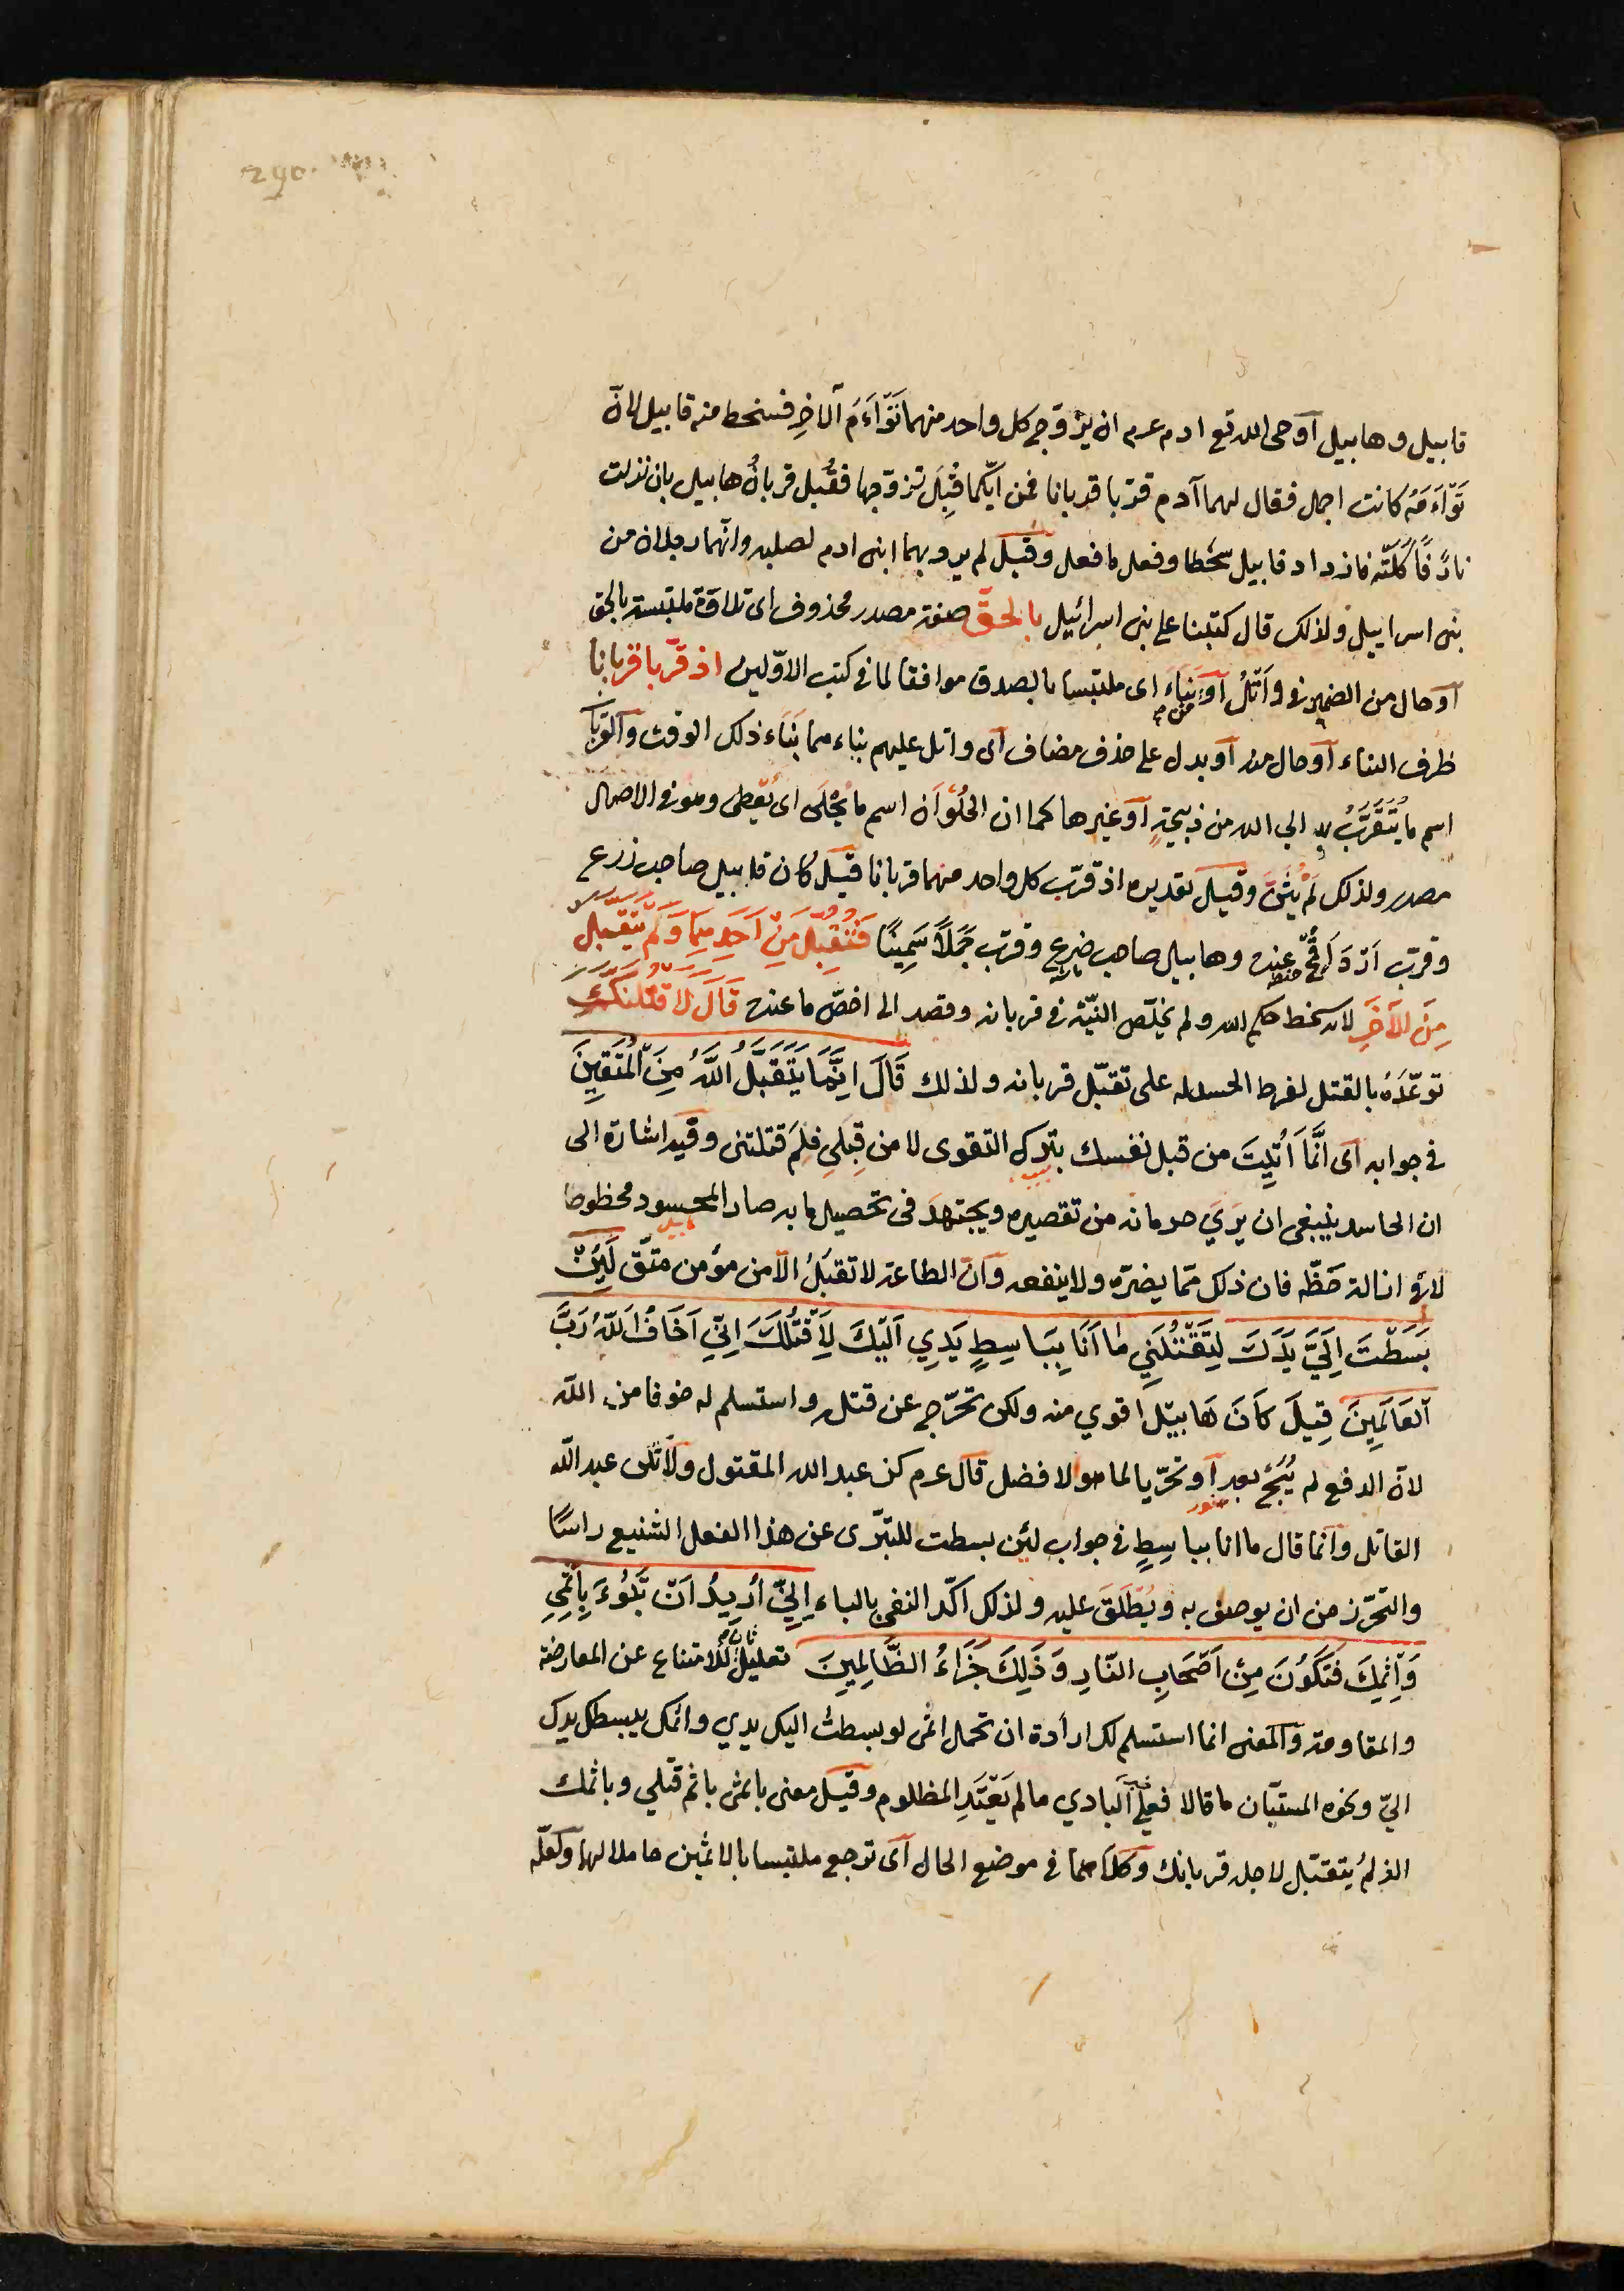 290
قابيل وهابيل اوحى الله تع ادم عرم ان يزوّج كل واحد منهما تَوْاَءَمَ الاخِرِ فسخط منه قابيل لانّ
تَوْاَءَمَتَهُ كانت اجمل فقال لهما آدم قرّبا قربانا فمن ايّكما قُبِلَ تزوّجها فقُبل قربانُ هابيل بان نزلت
نارٌ فَاَكَلَتْه فازداد قابيل سُخْطا وفعل ما فعل وقيل لم يرد بهما ابنى ادم لصلبه وانّهما رجلان من
بنى اسراييل ولذلك قال كتبنا على بنى اسرائيل بالحقّ صفة مصدر محذوف اى تلاوة ملتبسة بالحق
او حال من الضمير فى واَتْلُ اَو من نَبَاءَ اى ملتبسا بالصدق موافقا لما فى كتب الاوّلين اذ قرّبا قربانا
ظرف النباء او حال منه او بدل على حذف مضاف اى واتل عليهم نباءهما نَبَاءَ ذلك الوقت والقربان
اسم ما يُتَقَرَّبُ به الي الله من ذبيحةٍ او غيرها كما ان الحُلْوَان اسم ما يُحْلَى اى يُعْطى وهو فى الاصل
مصدر ولذلك لَمْ يُثَنَّ وقيل تقديره اذ قرّب كل واحد منهما قربانا قيل كان قابيل صاحب زرع
وقرّب اَرْدَاَ قُمْحٍ عنده وهابيل صاحب ضرع وقرّب جَمَلًا سَمِينًا فَتُقُبِّلَ مِنْ اَحَدِهِمَا وَلَمْ يُتَقَبَّلْ
مِنَ الآخَرِ لانه سخط حكم الله ولم يخلّص النيّة فى قربانه وقصد الى اخصّ ما عنده قَالَ لَاَقْتُلَنَّكَ
توعّدَهُ بالقتل لفرط الحسد له على تقبّل قربانه ولذلك قَالَ اِنَّمَا يَتَقَبَّلُ اللّٰهُ مِنَ الْمُتَّقِينَ
فى جوابه اى انَّمَا اُتِيتَ من قبل نفسك بترك التقوى لا من قِبَلي فلِمَ قتلتنى وفيه اشارة الى
ان الحاسد ينبغى ان يرَيَ حرمانه من تقصيره ويجتهدَ فى تحصيل ما به صار المحسود محظوظا
لا فى ازالة حَظّه فان ذلك ممّا يضرّه ولا ينفعه وانّ الطاعة لا تقبلُ الّا من مؤمن متّق لَئِنْ
بَسَطْتَ اِلَيَّ يَدَكَ لِتَقْتُلَنِي مَا اَنَا بِبَاسِطٍ يَدِيِ اِلَيْكَ لِاَقْتُلَكَ اِنِّي اَخَافُ اللّٰهَ رَبَّ
الْعَالَمِينَ قِيلَ كَانَ هَابِيلُ اقوي منه ولكن تحرّج عن قتله واستسلم له خوفا من الله
لانّ الدفع لم يُبَحْ بعد او تحرّيا لما هو الافضل قال عرم كن عبد الله المقتول ولا تكن عبد الله
القاتل وانما قال ما انا بباسِطٍ فى جواب لئن بسطت للتبرّى عن هذا الفعل الشنيع راسًا
والتحرّز من ان يوصف به ويُطْلَقَ عليه ولذلك اكّد النفى بالباء اِنِّي اُرِيدُ اَنْ تَبُوءَ بِاِثْمِي
وَاِثْمِكَ فَتَكُونَ مِنْ اَصْحَابِ النّارِ وَذَلِكَ جَزَاءُ الظَّالِمِينَ تعليلٌ ثان للامتناع عن المعارضة
والمقاومة والمعنى انما استسلم لك ارادة ان تحمل اثمى لو بسطتُ اليك يدي واثمك ببسطك يدك
اليّ ونحوه المستبّان ما قالا فعلى البادي ما لم يَعْتَدِ المظلوم وقيل معنى باثمى باثم قتلي وباثمك
الذى لم يتقبّل لاجله قربانك وكلاهما فى موضع الحال اى ترجع ملتبسا بالاثمين حاملا لهما ولعلّه